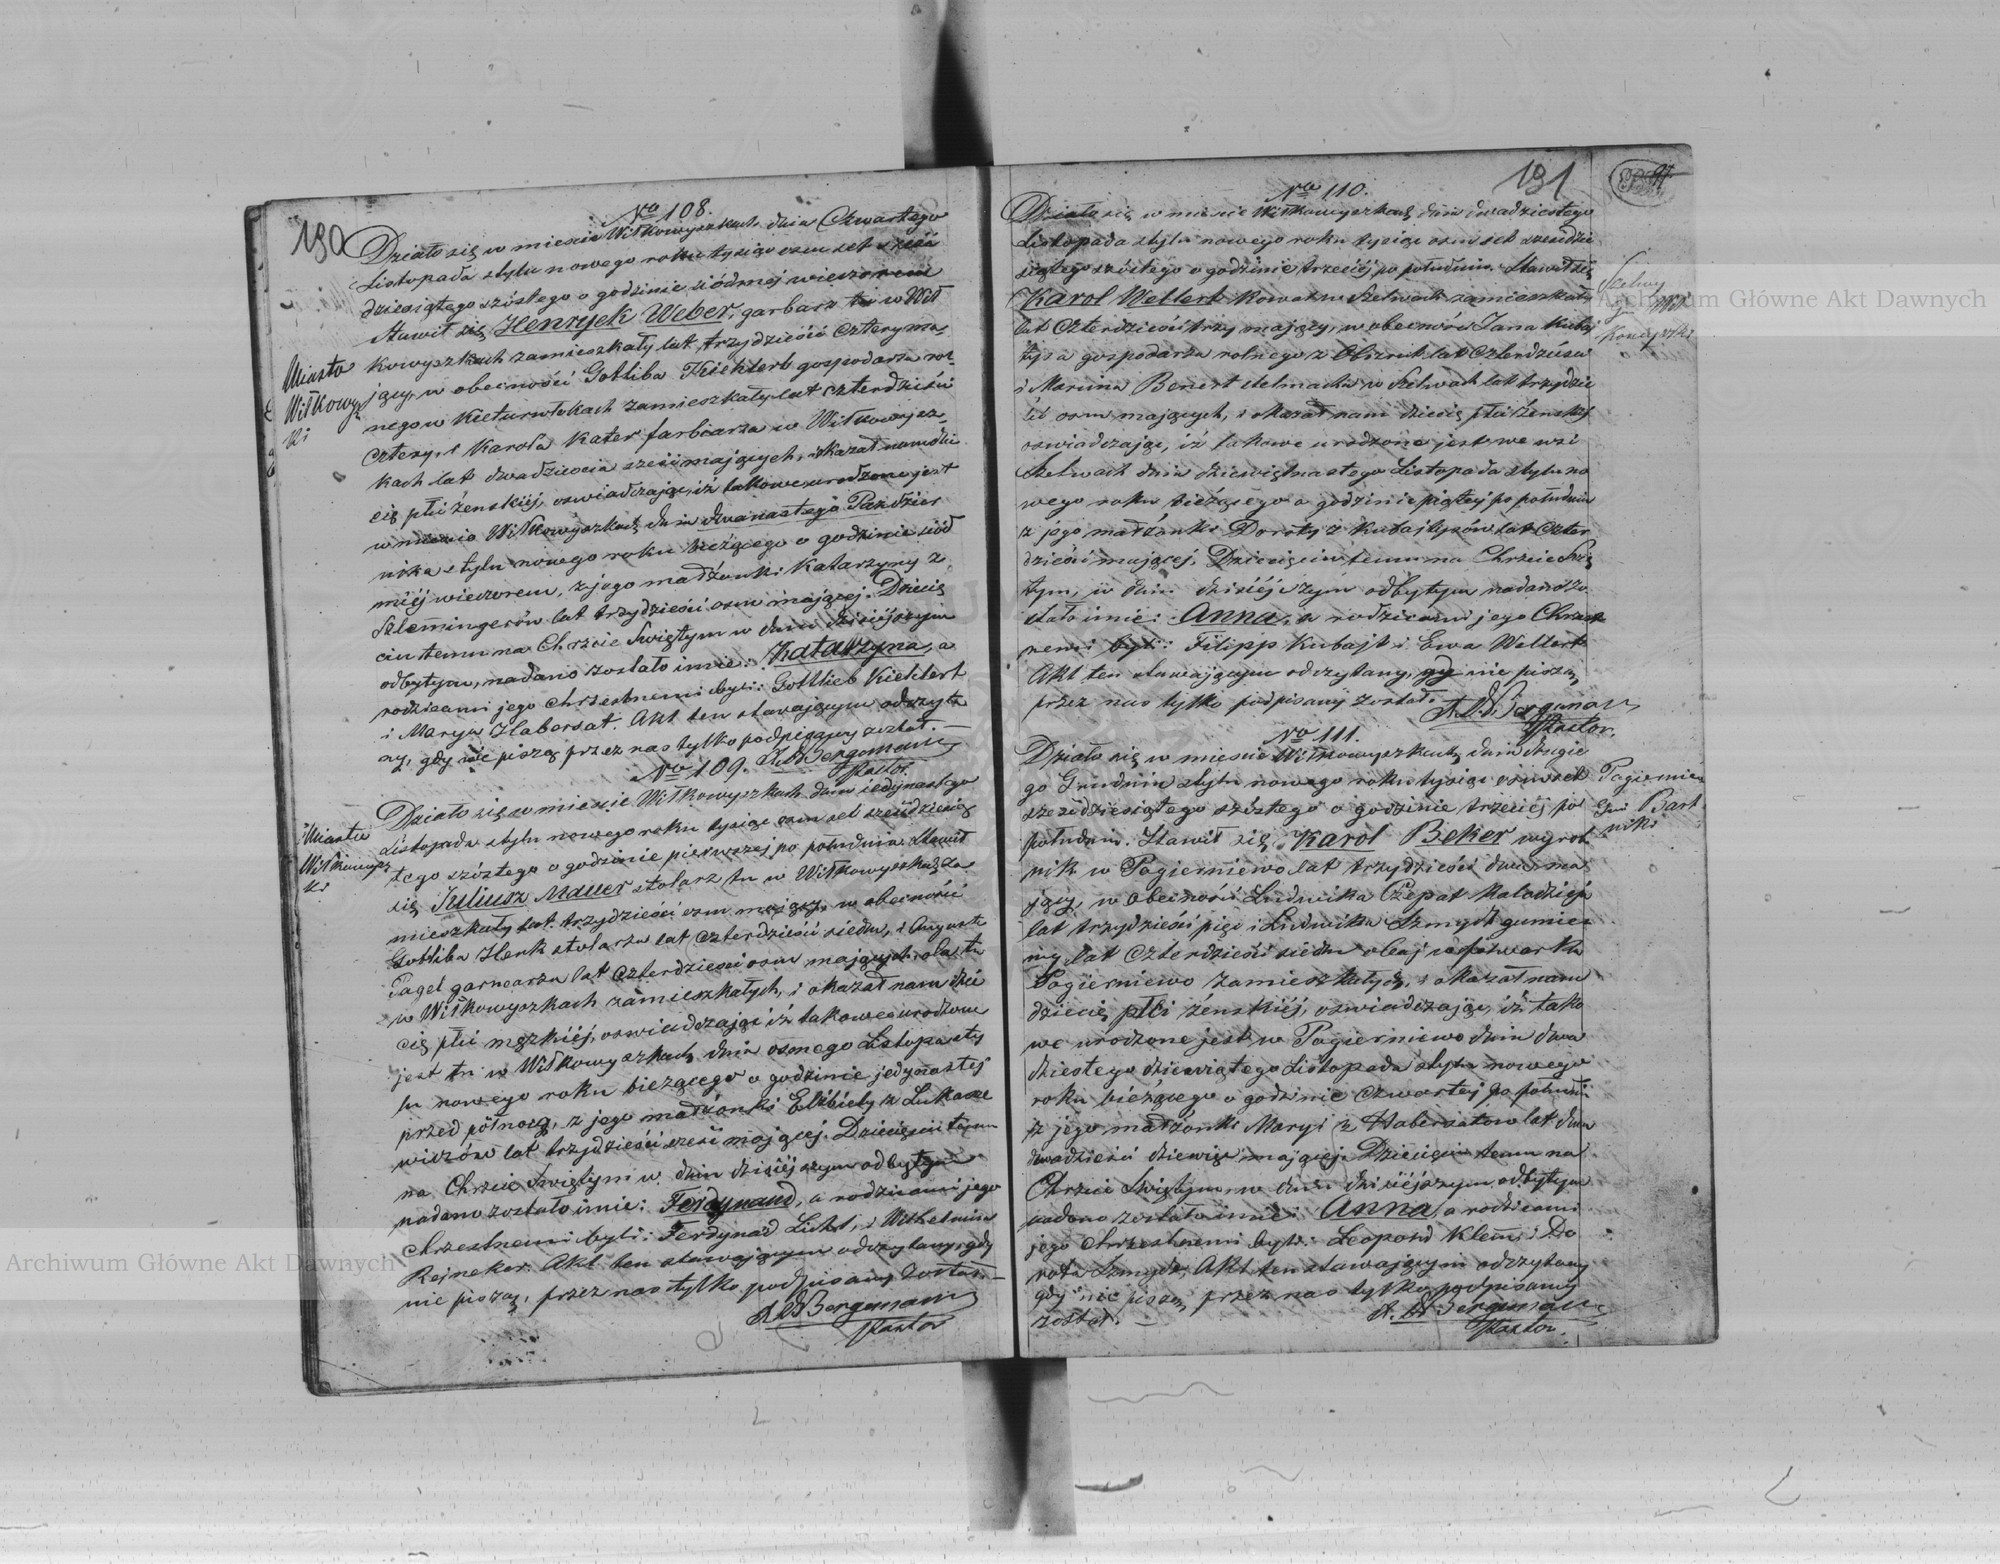 190
No 108.
Działo się w mieście Wiłkowyszkach dnia Czwartego
Listopada stylu nowego roku tysiąc osm set sześć
dziesiątego szóstego o godzinie siódmej wieczorem
Stawił się Henryck Weber, garbarz tu w Wił
kowyszkach zamieszkały lat trzydzieści cztery ma
jący, w obecności Gotliba Kichlert gospodarza rol
nego w Kieturwłokach zamieszkały lat czterdzieści
cztery, i Karola Kater farbiarza w Wiłkowysz
kach lat dwadzieścia sześć mających, i okazał nam dzie
cię płci żeńskiej, oświadczając iż takowe urodzone jest
w mieście Wiłkowyszkach dnia dwunastego Paździer
nika stylu nowego roku bieżącego o godzinie siód
mej wieczorem, z jego małżonki Katarzyny z
Szlemingerów lat trzydzieści osm mającej. Dziecię
ciu temu na Chrzcie Świętym w dniu dzisiejszym
odbytym, nadano zostało imie: Katarzyna, a
rodzicami jego chrzestnemi byli: Gottlieb Kichlert
i Marya Habersat. Akt ten stawającym odczyta
ny, gdy nie piszą przez nas tylko podpisany został.
Bergmann
Pastor.
Miasto
Wiłkowysz
ki
No 109.
Działo się w mieście Wiłkowyszkach dnia jedynastego
Listopada stylu nowego roku tysiąc osm set sześćdziesią
tego szóstego o godzinie pierwszej po południu. Stawił
się Juliusz Mauer stolarz tu w Wiłkowyszkach za
mieszkały lat trzydzieści osm mający, w obecności
Gottliba Henk stolarza lat czterdzieści siedm, i Augusta
Pagel garncarza lat czterdzieści osm mających, oba tu
w Wiłkowyszkach zamieszkałych, i okazał nam dzie
cię płci męzkiej, oświadczając iż takowe urodzone
jest tu w Wiłkowyszkach dnia osmego Listopa sty
lu nowego roku bieżącego o godzinie jedynastej
przed północą, z jego małżonki Elżbiety z Łukasze
wiczów lat trzydzieści sześć mającej. Dziecięciu temu
na Chrzcie Świętym w dniu dzisiejszym odbytym
nadano zostało imie: Ferdynand, a rodzicami jego
chrzestnemi byli: Ferdynad Licht, i Wilhelmina
Rejneker. Akt ten stawającym odczytany, gdy
nie piszą, przez nas tylko podpisany został.
Bergmann
Pastor
Miasto
Wiłkowysz
ki
191
No 110.
Działo się w mieście Wiłkowyszkach dnia dwudziestego
Listopada stylu nowego roku tysiąc osm set sześćdzie
siątego szóstego o godzinie trzeciej po południu. Stawił się
Karol Wellert kowal w Szelwach zamieszkały
lat czterdzieści trzy mający, w obecności Jana Kubaj
tysa gospodarza rolnego z lat czterdzieści
i Marcina Benert stelmacha w Szelwach lat trzydzie
ści osm mających, i okazał nam dziecię płci żeńskiej
oświadczając, iż takowe urodzone jest we wsi
Szelwach dnia dziewiętnastego Listopada stylu no
wego roku bieżącego o godzinie piątej po południu
z jego małżonki Doroty z Kubajtysów lat czter
dzieści mającej. Dziecięciu temu na Chrzcie Świę
tym, w dniu dzisiejszym odbytym nadano zo
stało imie: Anna, a rodzicami jego Chrzest
nemi byli: Filipp Kubajt i Ewa Wellert.
Akt ten stawającym odczytany, gdy nie piszą,
przez nas tylko podpisany został.
Bergmann
Pastor.
Szelwy
gm Wił
kowyszki
No 111.
Działo się w mieście Wiłkowyszkach dnia drugie
go Grudnia stylu nowego roku tysiąc osm set
sześćdziesiątego szóstego o godzinie trzeciej po
południu. Stawił się Karol Beker wyrob
nik w Pagierniewo lat trzydzieści dwa ma
jący, w obecności Ludwika Czepat kołodzieja
lat trzydzieści pięć i Ludwika Szmydt gumien
ny lat czterdzieści siedm obaj w folwarku
Pagierniewo zamieszkałych, i okazał nam
dziecię płci żeńskiej, oświadczając, iż tako
we urodzone jest w Pagierniewo dnia dwu
dziestego dziewiątego Listopada stylu nowego
roku bieżącego o godzinie czwartej po południu
z jego małżonki Maryi z Habersatów lat
dwadzieścia dziewięć mającej. Dziecięciu temu na
Chrzcie Świętym, w dniu dzisiejszym odbytym
nadano zostało imie: Anna, a rodzicami
jego chrzestnemi byli: Leopold Klem, i Do
rota Szmydt, Akt ten stawającym odczytany
gdy nie piszą, przez nas tylko podpisany
został.
Bergmann
Pastor.
Pagiernie
gm Bart
niki
Archiwum Główne Akt Dawnych
Archiwum Główne Akt Dawnych